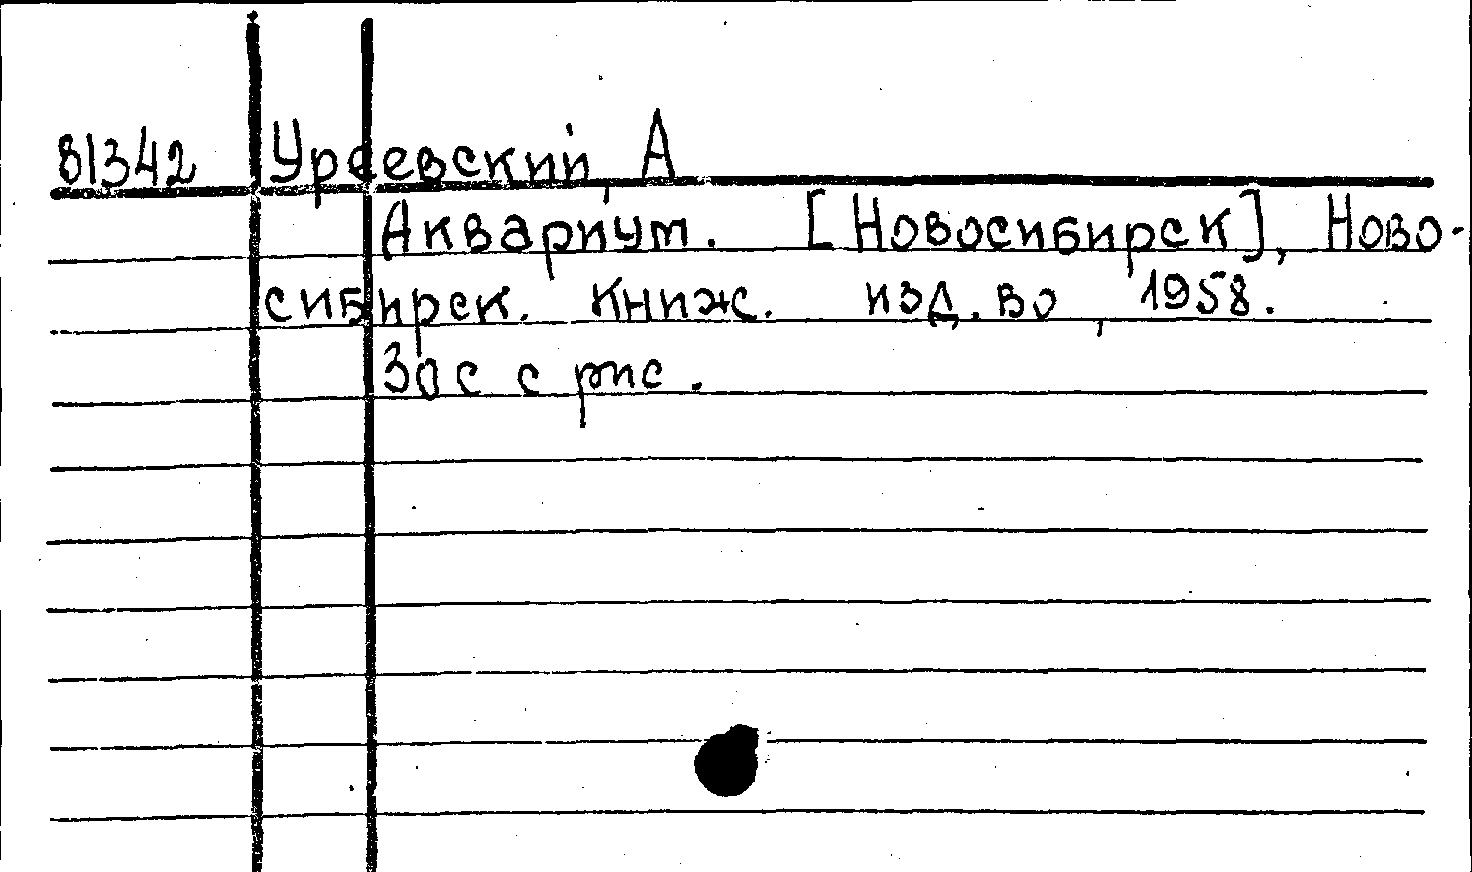 81342 Ураевский, А
Аквариум. [Новосибирск], Ново-
сибирск. Книж. изд.во, 1958.
30 с с рис.